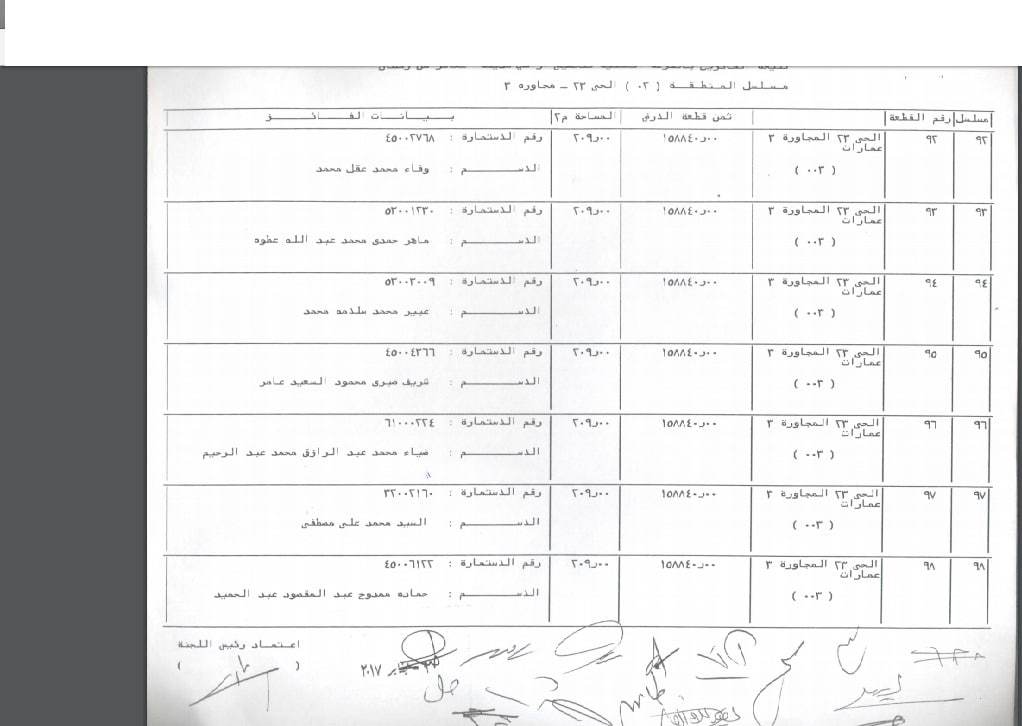 مسلسل المنطقة ( ٠٢ ) الحى ٢٣ - مجاوره ٣
مسلسل رقم القطعة ثمن قطعة الارض المساحة م٢ بيانات الفائز
٩٢ ٩٢ الحى ٢٣ المجاورة ٣ ١٥٨٨٤٠ر٠٠ ٢٠٩ر٠٠ رقم الاستمارة : ٤٥٠٠٢٧٦٨
عمارات
( ٠٠٣ ) الاسم : وفاء محمد عقل محمد
٩٣ ٩٣ الحى ٢٣ المجاورة ٣ ١٥٨٨٤٠ر٠٠ ٢٠٩ر٠٠ رقم الاستمارة : ٥٣٠٠١٢٣٠
عمارات
( ٠٠٣ ) الاسم : ماهر حمدى محمد عبد الله عطوه
٩٤ ٩٤ الحى ٢٣ المجاورة ٣ ١٥٨٨٤٠ر٠٠ ٢٠٩ر٠٠ رقم الاستمارة : ٥٣٠٠٣٠٠٩
عمارات
( ٠٠٣ ) الاسم : عبير محمد سلامه محمد
٩٥ ٩٥ الحى ٢٣ المجاورة ٣ ١٥٨٨٤٠ر٠٠ ٢٠٩ر٠٠ رقم الاستمارة : ٤٥٠٠٤٣٦٦
عمارات
( ٠٠٣ ) الاسم : شريف صبرى محمود السعيد عامر
٩٦ ٩٦ الحى ٢٣ المجاورة ٣ ١٥٨٨٤٠ر٠٠ ٢٠٩ر٠٠ رقم الاستمارة : ٦١٠٠٠٢٢٤
عمارات
( ٠٠٣ ) الاسم : ضياء محمد عبد الرازق محمد عبد الرحيم
٩٧ ٩٧ الحى ٢٣ المجاورة ٣ ١٥٨٨٤٠ر٠٠ ٢٠٩ر٠٠ رقم الاستمارة : ٣٢٠٠٢١٦٠
عمارات
( ٠٠٣ ) الاسم : السيد محمد على مصطفى
٩٨ ٩٨ الحى ٢٣ المجاورة ٣ ١٥٨٨٤٠ر٠٠ ٢٠٩ر٠٠ رقم الاستمارة : ٤٥٠٠٦١٢٢
عمارات
( ٠٠٣ ) الاسم : حماده ممدوح عبد المقصود عبد الحميد
اعتماد رئيس اللجنة
( )
٢٠١٧